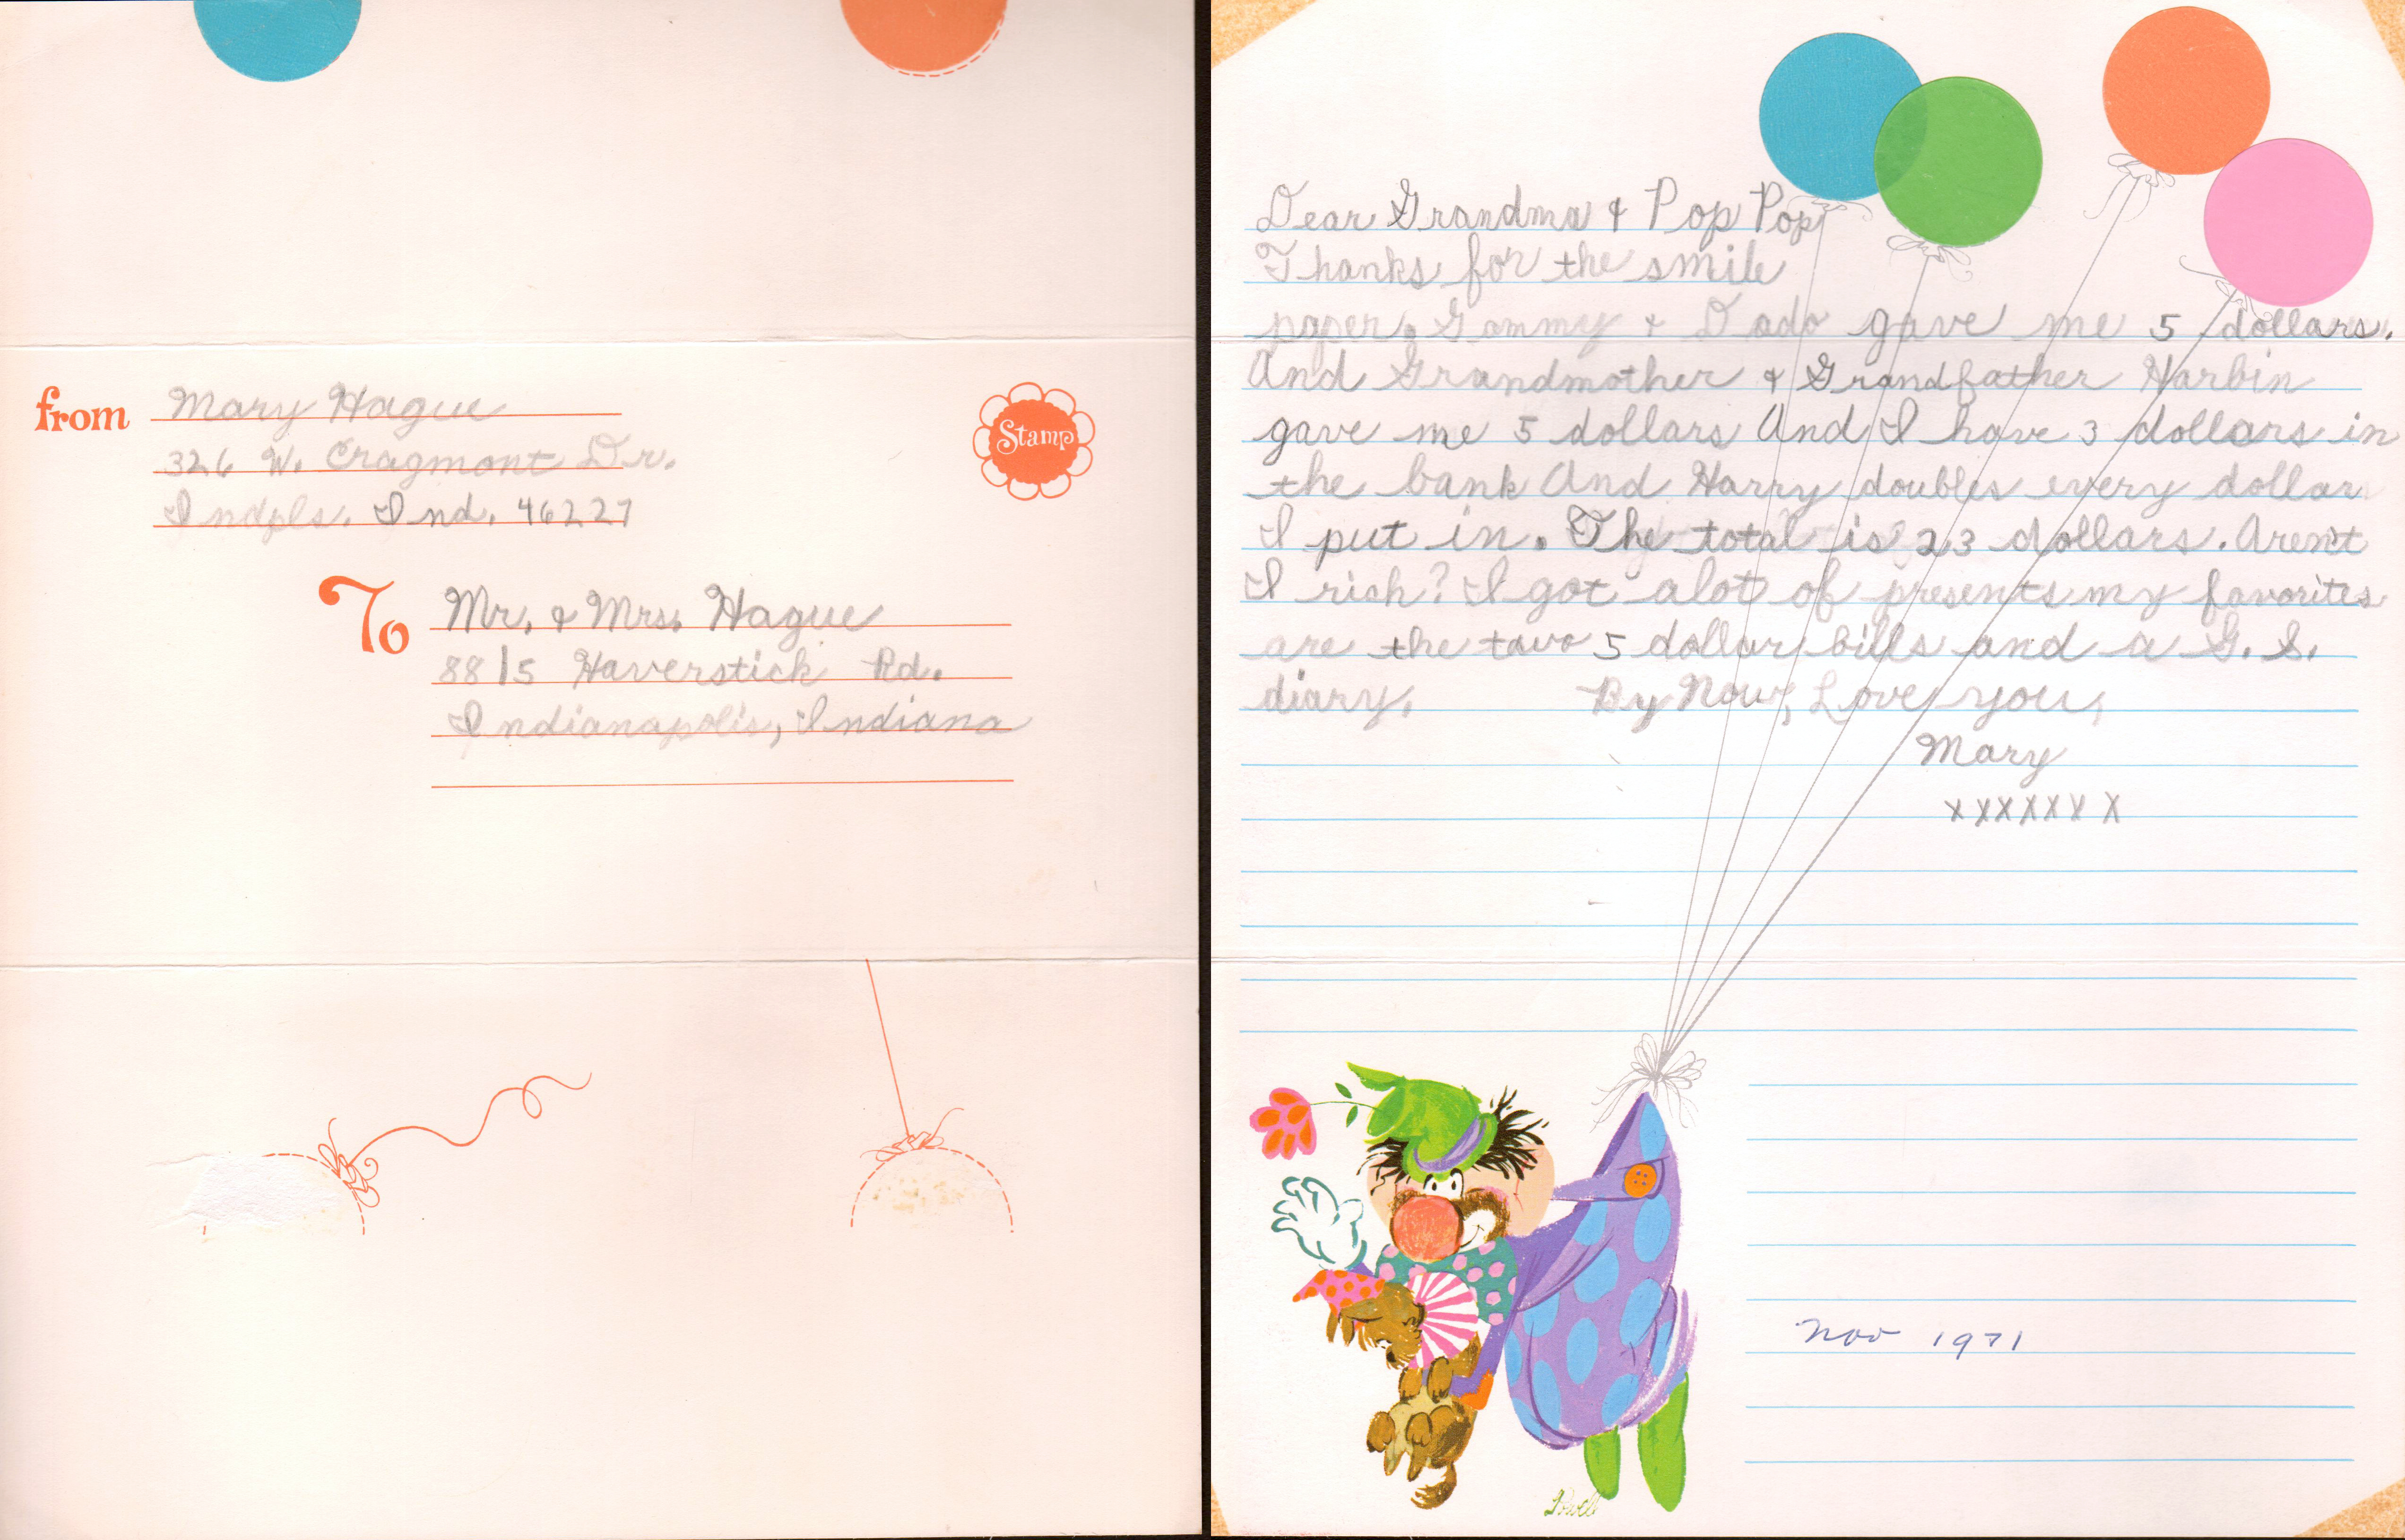 from Mary Hague
326 W. Cragmont Dr.
Indpls. Ind. 46227
Stamp
To Mr. & Mrs. Hague
8815 Haverstick Rd.
Indianapolis, Indiana
Dear Grandma & Pop Pop
Thanks for the smile
paper. Gammy & Dado gave me 5 dollars.
And Grandmother & Grandfather Harbin
gave me 5 dollars And I have 3 dollars in
the bank And Harry doubles every dollar
I put in. The total is 23 dollars. Aren't
I rich? I got alot of presents my favorites
are the two 5 dollar bills and a G. S.
diary. By Now, Love you,
Mary
xxxxxxx
Nov 1971